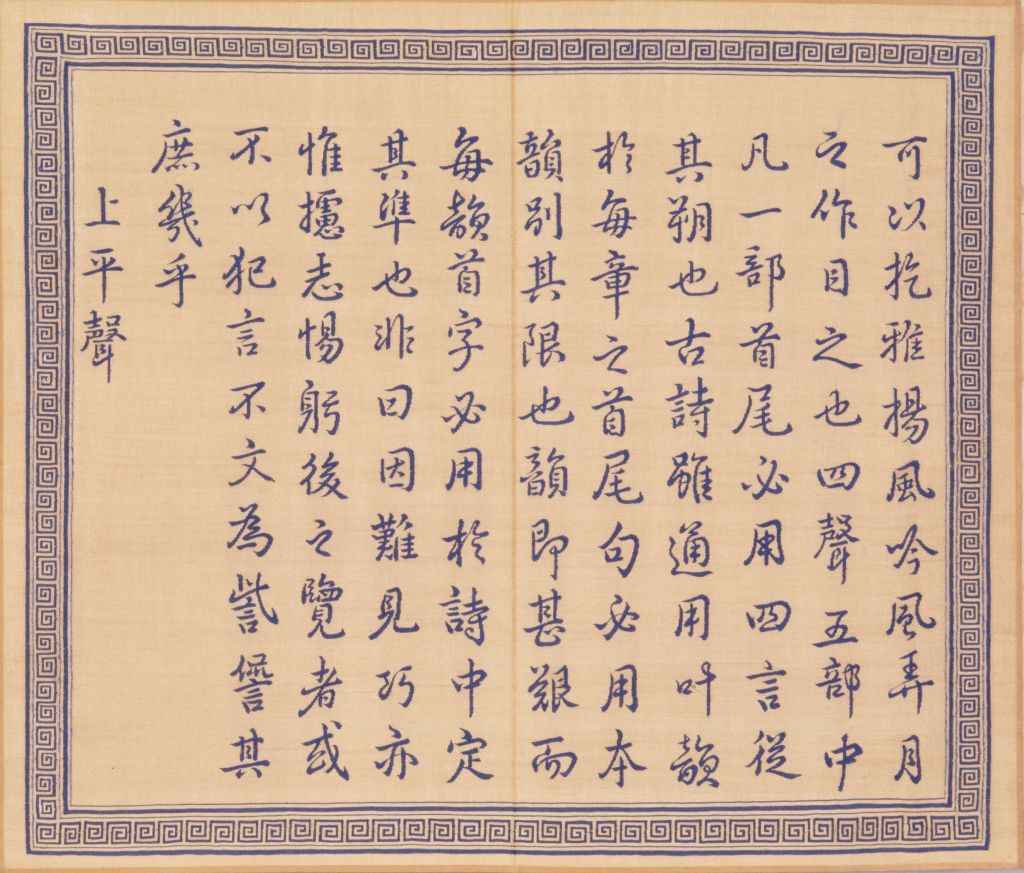 可以扢雅揚風吟風弄月
之作目之也四聲五部中
凡一部首尾必用四言從
其朔也古詩雖通用叶韻
於每章之首尾句必用本
韻別其限也韻即甚艱而
每韻首字必用於詩中定
其準也非曰因難見巧亦
惟攄志惕躬後之覽者或
不以犯言不文為訾諐其
庶幾乎
上平聲